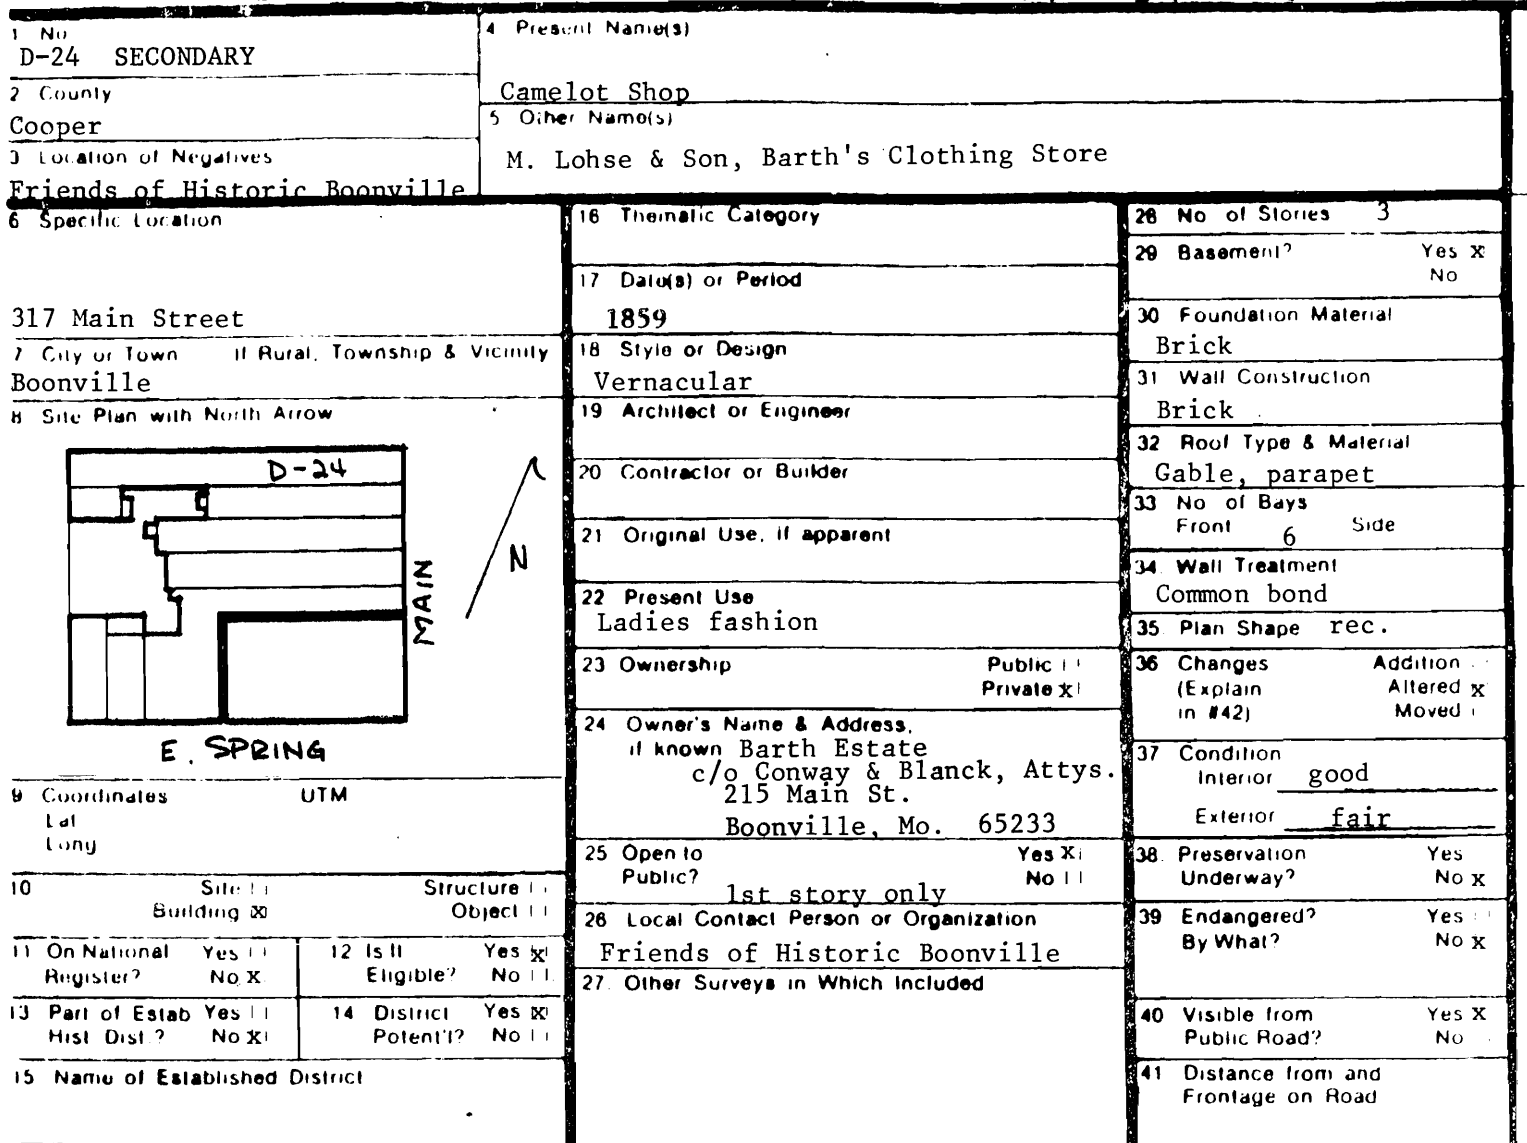 1 No
D-24 SECONDARY
2 County
Cooper
3 Location of Negatives
Friends of Historic Boonville
4 Present Name(s)
Camelot Shop
5 Other Name(s)
M. Lohse & Son, Barth's Clothing Store
6 Specific Location
317 Main Street
7 City or Town If Rural, Township & Vicinity
Boonville
8 Site Plan with North Arrow
D-24
N
MAIN
E. SPRING
9 Coordinates UTM
Lat
Long
10 Site
Structure
Building X
Object
11 On National Yes
Register? No X
12 Is It Yes X
Eligible? No
13 Part of Estab Yes
Hist Dist? No X
14 District Yes X
Potent'l? No
15 Name of Established District
16 Thematic Category
17 Date(s) or Period
1859
18 Style or Design
Vernacular
19 Architect or Engineer
20 Contractor or Builder
21 Original Use, if apparent
22 Present Use
Ladies fashion
23 Ownership Public
Private X
24 Owner's Name & Address,
if known Barth Estate
c/o Conway & Blanck, Attys.
215 Main St.
Boonville, Mo. 65233
25 Open to Yes X
Public? No
1st story only
26 Local Contact Person or Organization
Friends of Historic Boonville
27. Other Surveys in Which Included
28 No of Stories 3
29 Basement? Yes X
No
30 Foundation Material
Brick
31 Wall Construction
Brick
32 Roof Type & Material
Gable, parapet
33 No of Bays
Front 6 Side
34 Wall Treatment
Common bond
35 Plan Shape rec.
36 Changes Addition
(Explain Altered X
in #42) Moved
37 Condition
Interior good
Exterior fair
38. Preservation Yes
Underway? No X
39 Endangered? Yes
By What? No X
40 Visible from Yes X
Public Road? No
41 Distance from and
Frontage on Road